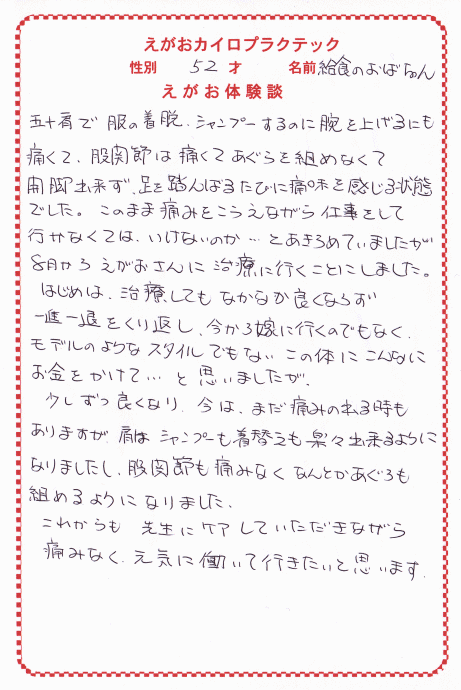 えがおカイロプラクテック
性別 52 才 名前 給食のおばちゃん
えがお体験談
五十肩で 服の着脱、シャンプーするのに腕を上げるにも
痛くて、股関節は痛くてあぐらを組めなくて
開脚出来ず、足を踏んばるたびに痛味を感じる状態
でした。このまま痛みをこらえながら仕事をして
行かなくては、いけないのか…とあきらめていましたが
8月からえがおさんに治療に行くことにしました。
はじめは、治療してもなかなか良くならず
一進一退をくり返し、今から嫁に行くのでもなく、
モデルのようなスタイルでもない この体にこんなに
お金をかけて…と思いましたが、
少しずつ良くなり、今は、まだ痛みの残る時も
ありますが、肩はシャンプーも着替えも楽々出来るように
なりましたし、股関節も痛みなくなんとかあぐらも
組めるようになりました。
これからも 先生にケアしていただきながら
痛みなく、元気に働いて行きたいと思います。